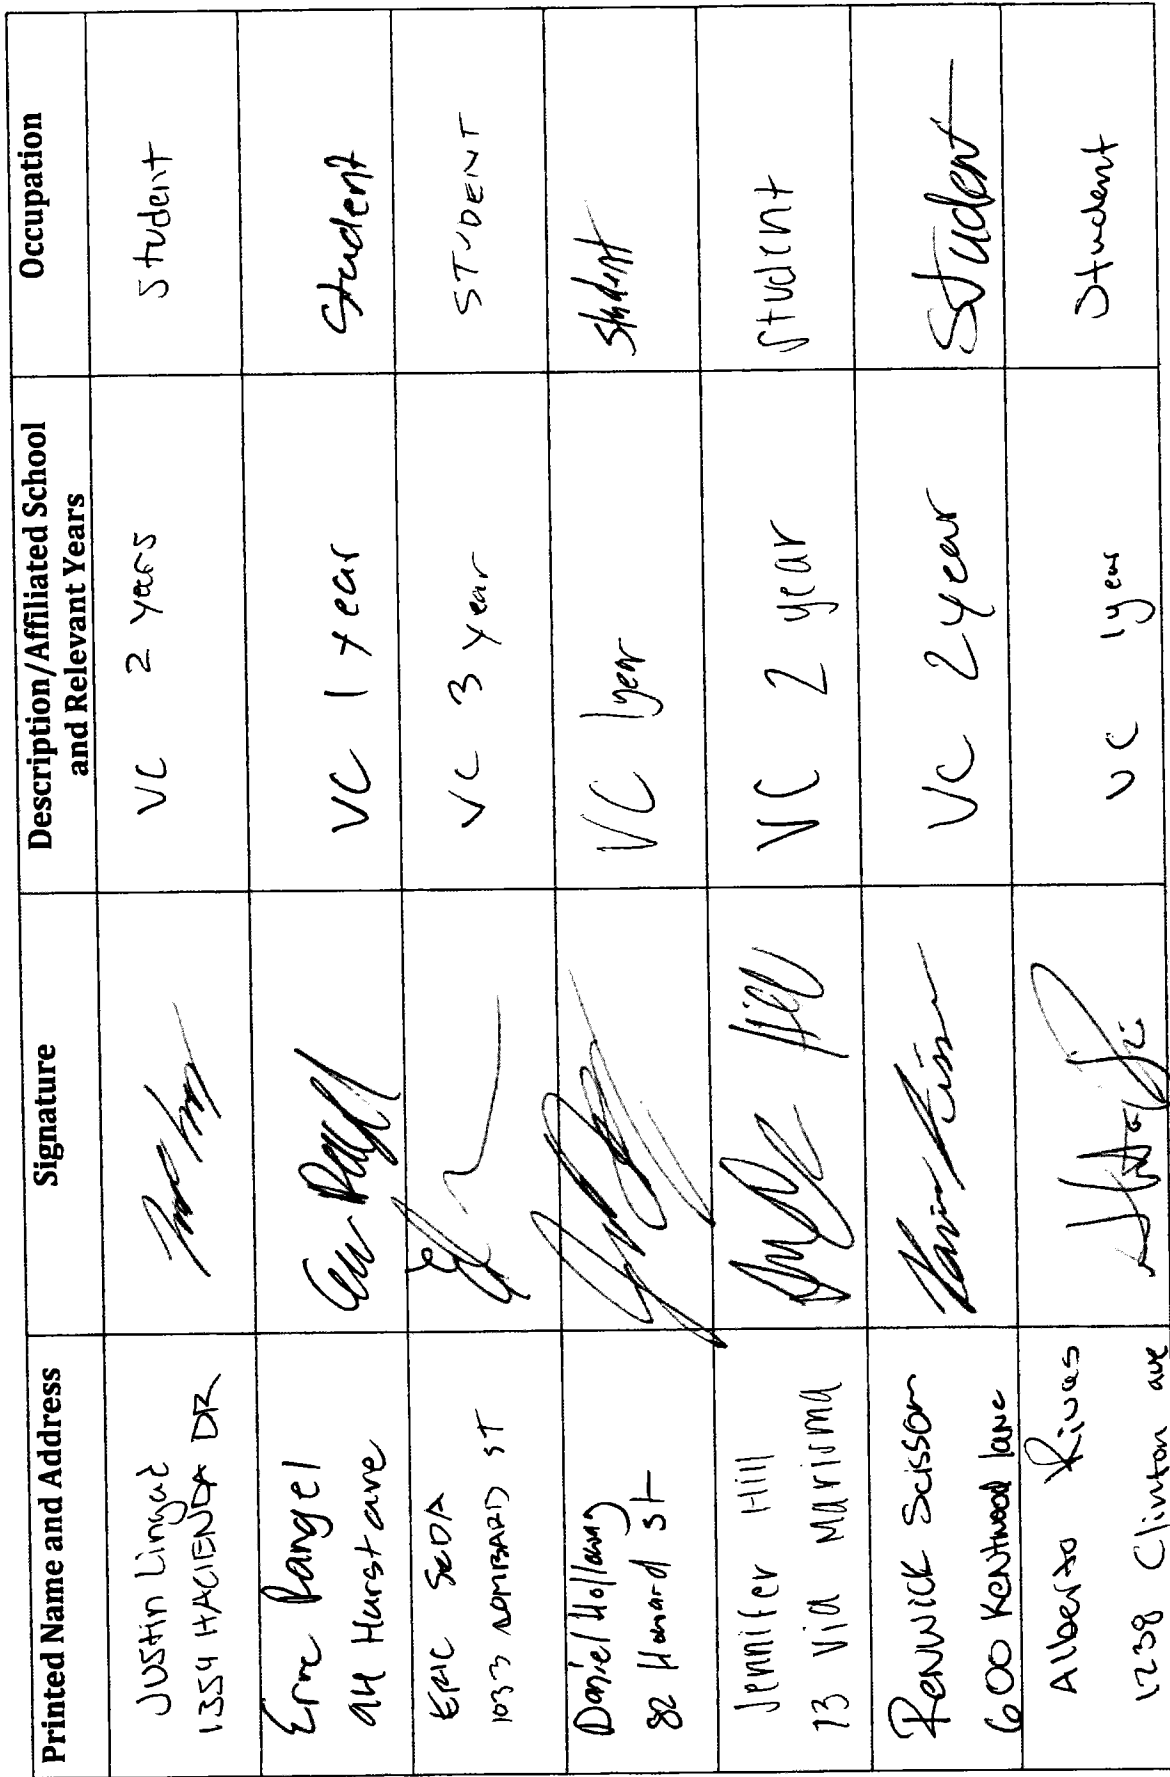 Printed Name and Address
Signature
Description/Affiliated School
and Relevant Years
Occupation
JUSTIN Lingad
1354 HACIENDA DR
VC 2 years
Student
Eric Rangel
94 Hurst ave
VC 1 year
Student
ERIC SEDA
1033 LOMBARD ST
VC 3 year
STUDENT
Daniel
82 Howard St
VC 1 year
Student
Jennifer Hill
23 Via Marisma
VC 2 year
Student
RENWICK Scisson
600 Kentwood lane
VC 2 year
Student
Alberto Rivas
1238 Clinton ave
VC 1 year
Student